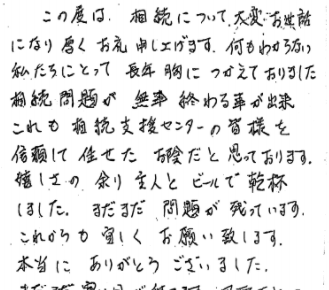 この度は、相続について、大変お世話
になり厚くお礼申し上げます。何もわからない
私たちにとって 長年胸につかえておりました
相続問題が 無事 終わる事が出来
これも 相続支援センターの皆様を
信頼して任せたお陰だと思っております。
嬉しさの余り主人とビールで乾杯
しました。まだまだ 問題が残っています。
これからも宜しくお願い致します。
本当に ありがとうございました。